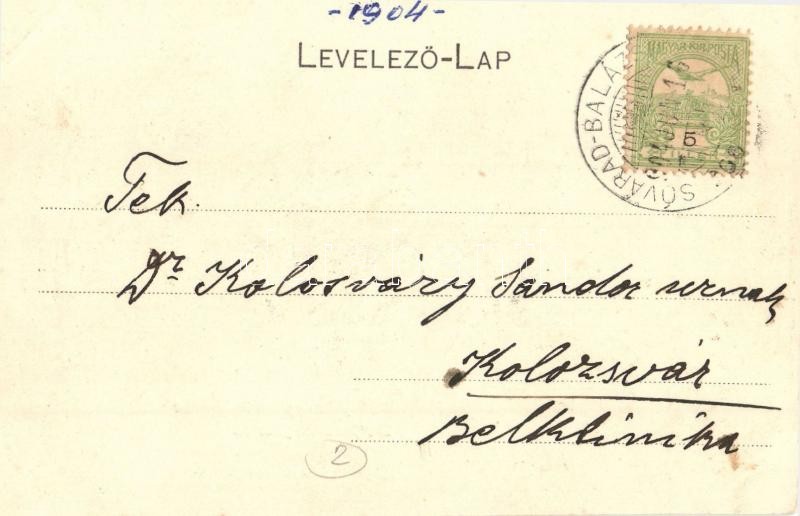 -1904-
LEVELEZŐ-LAP
MAGYAR KIR. POSTA
5
SÓVÁRAD-BALÁZ
Tek.
Dr. Kolosváry Sandor urnak
Kolozsvár
Belklinika
2